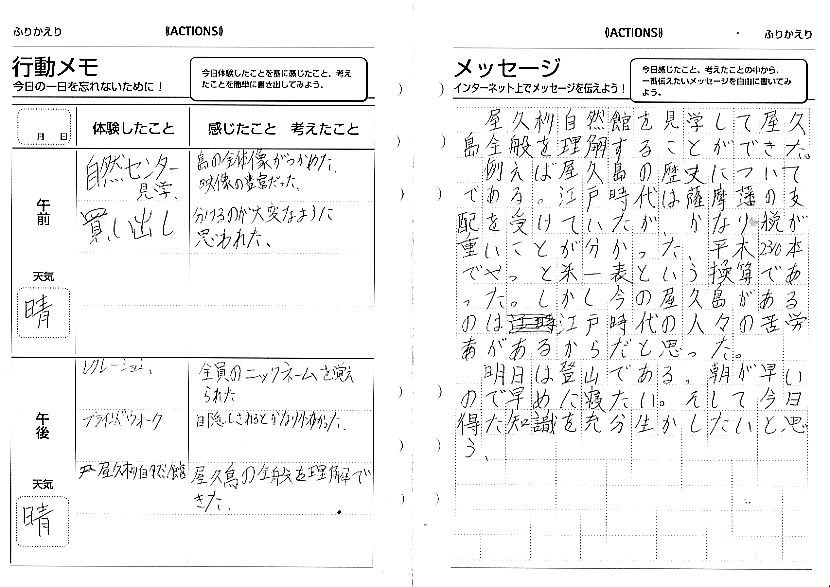 ふりかえり
《ACTIONS》
行動メモ
今日の一日を忘れないために！
今日体験したことを基に感じたこと、考え
たことを簡単に書き出してみよう。
月 日
体験したこと
感じたこと 考えたこと
午前
天気
晴
自然センター
見学、
島の全体像がつかめた、
映像の豊富だった、
買い出し
分けるのが大変なように
思われた、
午後
天気
晴
レクレーション、
全員のニックネームを覚え
られた
ブラインドウオーク
目隠しされるとかなり怖かった、
屋久杉自然館
屋久島の全般を理解で
きた、
《ACTIONS》
ふりかえり
メッセージ
インターネット上でメッセージを伝えよう！
今日感じたこと、考えたことの中から、
一番伝えたいメッセージを自由に書いてみ
よう。
屋久杉自然館を見学して屋久
島全般を理解することができた。
例えば屋久島の歴史について
である。江戸時代は薩摩藩の支
配を受けていたが、かなり税が
重いことが分かった、平木2310本
でやっと米一表という換算であ
った。しかし今の屋久島がある
のは江戸時代の人々の苦労
あがあるからだと思った。
明日は登山である。朝が早い
ので早めに寝たい。そして今日
得た知識を充分生かしたいと思
う、